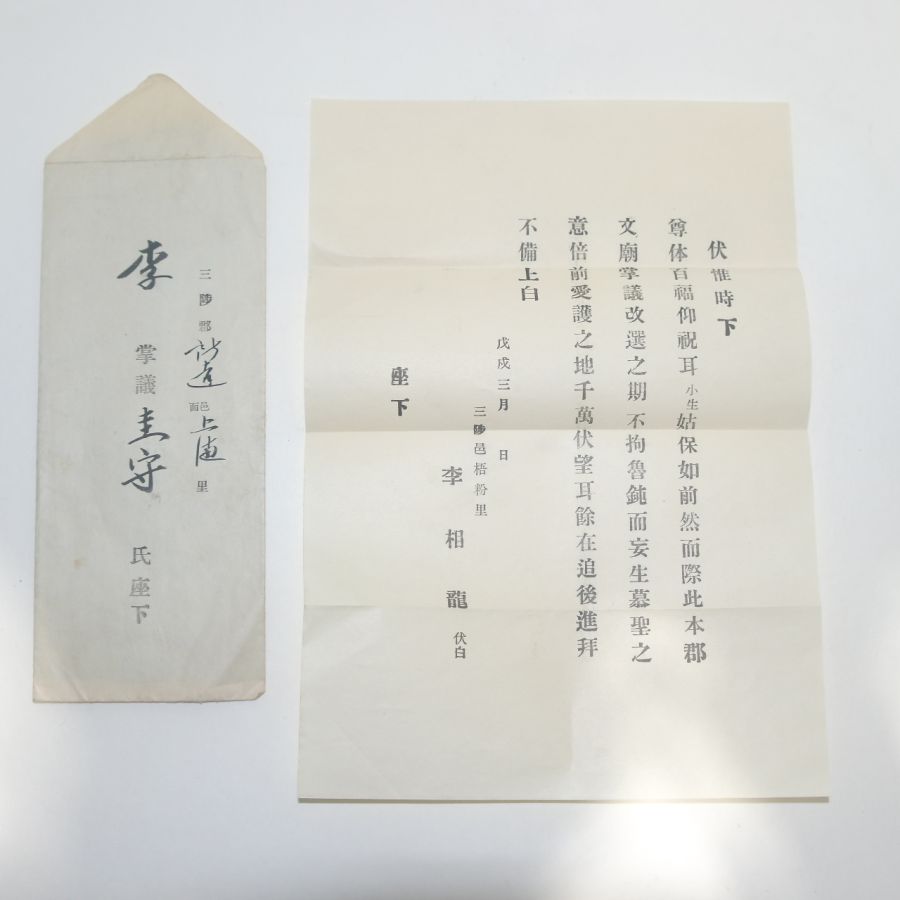 伏惟時下
尊体百福仰祝耳小生姑保如前然而際此本郡
文廟掌議改選之期不拘魯鈍而妄生慕聖之
意倍前愛護之地千萬伏望耳餘在追後進拜
不備上白
戊戌三月 日
三陟邑梧粉里
李相龍 伏白
座下
三陟郡 邑面 上 里
李 掌議 圭守 氏座下